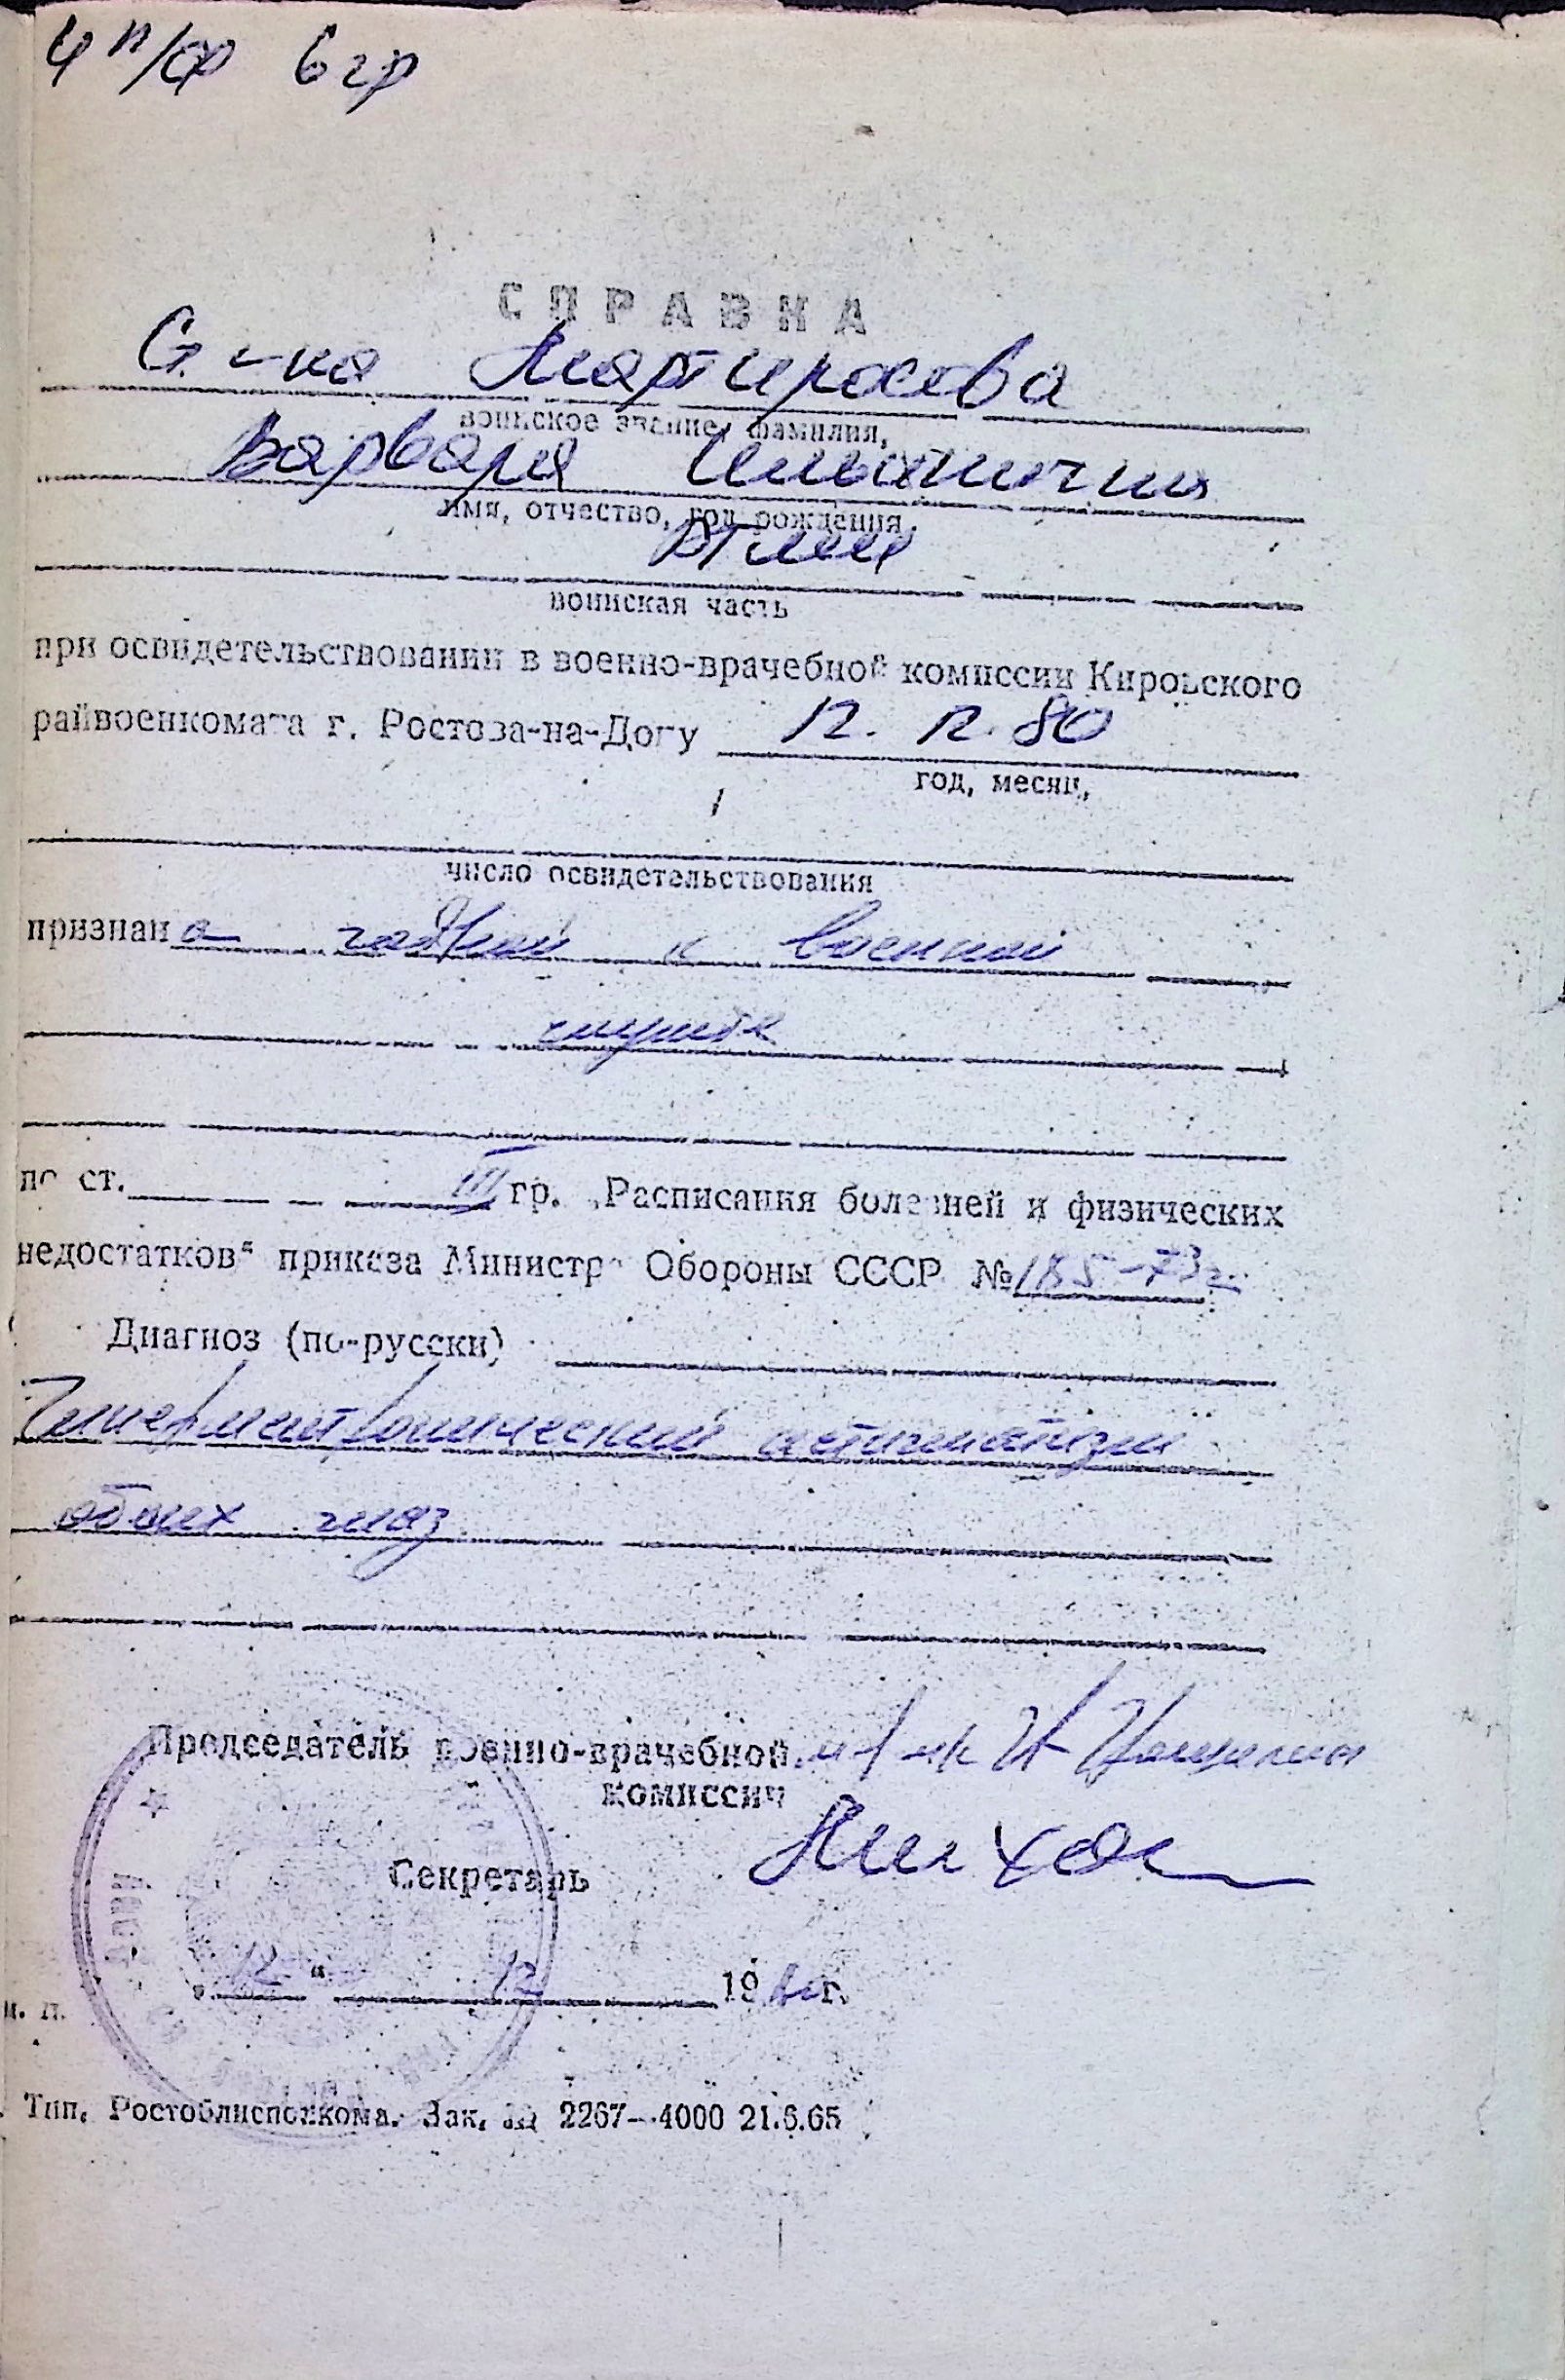 4 п/ф 6 гр
СПРАВКА
Мартиросова
воинское звание, фамилия,
Варвара Ильинична
имя, отчество, год рождения,
воинская часть
при освидетельствовании в военно-врачебной комиссии Кировского
райвоенкомата г. Ростова-на-Дону 12. 12. 80
год, месяц,
число освидетельствования
признана годной к военной
службе
по ст. III гр. „Расписания болезней и физических
недостатков“ приказа Министра Обороны СССР № 185-73г.
Диагноз (по-русски)
Гиперметропический астигматизм
обоих глаз
Председатель военно-врачебной
комиссии
Секретарь
„12“ 12 1980 г.
м. п.
Тип. Ростоблисполкома. Зак. № 2267-4000 21.6.65